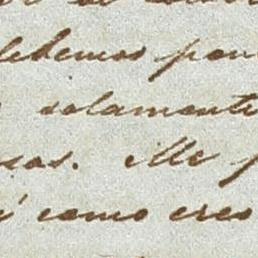 debemos pon
solamente
sas. Me p
como creo